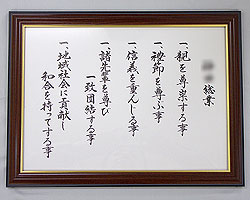 総業
一、親を尊崇する事
一、礼節を尊ぶ事
一、信義を重んじる事
一、諸先輩を尊び
一致団結する事
一、地域社会に貢献し
和合を持ってする事